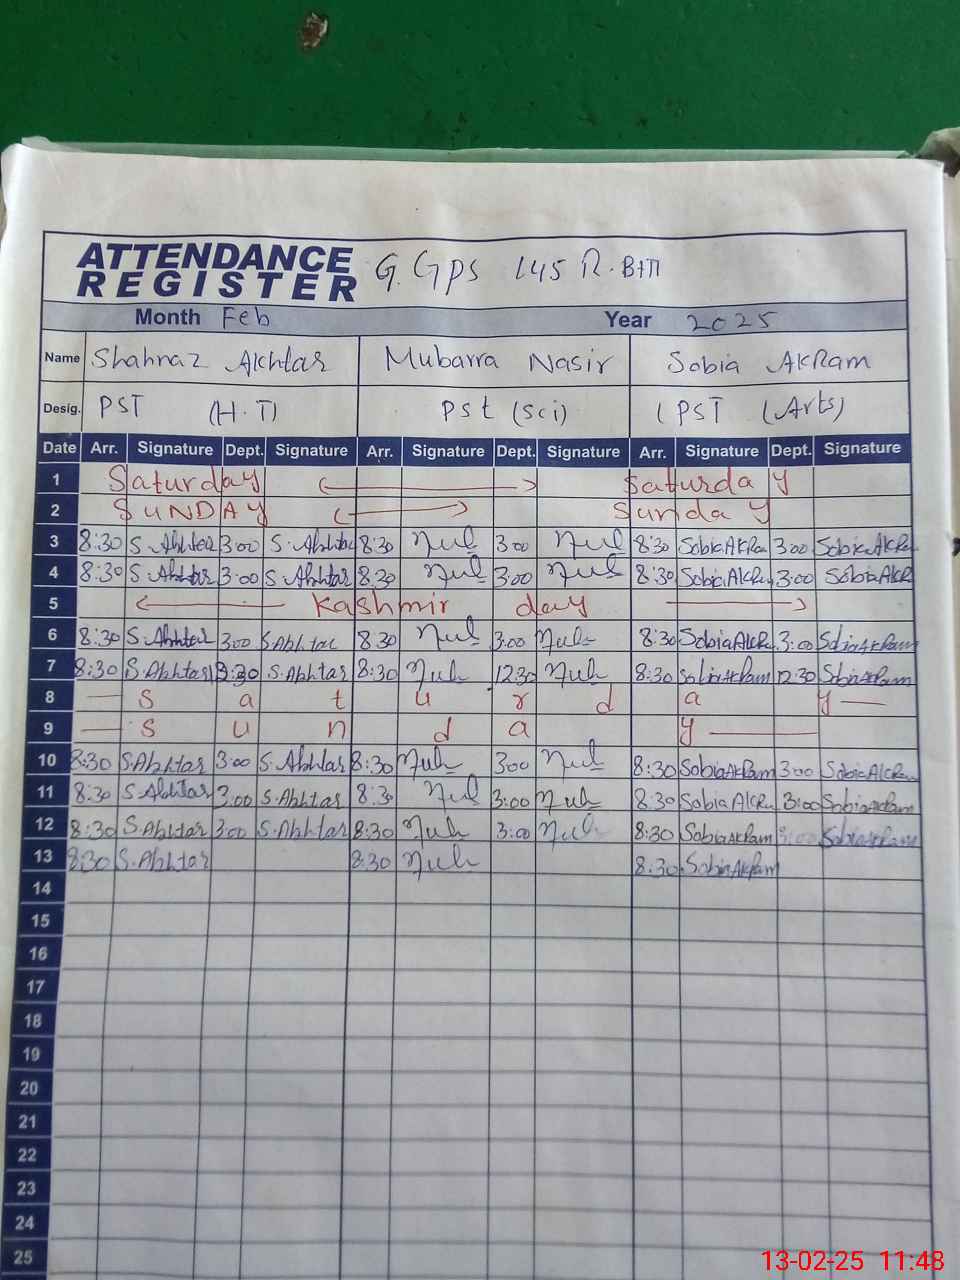 ATTENDANCE REGISTER G. GPS 145 R.B
Month Feb Year 2025
Name Shahnaz Akhtar Mubarra Nasir Sobia AkRam
Desig. PST (H.T) Pst (Sci) PST (Arts)
Date Arr. Signature Dept. Signature Arr. Signature Dept. Signature Arr. Signature Dept. Signature
1 Saturday Saturday
2 SUNDAY Sunday
3 8:30 S. Akhtar 3:00 S. Akhtar 8:30 3:00 8:30 Sobia AkRa 3:00 Sobia AkRa
4 8:30 S. Akhtar 3:00 S. Akhtar 8:30 3:00 8:30 Sobia AkR 3:00 Sobia AkR
5 Kashmir day
6 8:30 S. Akhtar 3:00 S. Akhtar 8:30 3:00 8:30 Sobia AkRa 3:00 Sobia AkRam
7 8:30 S. Akhtar S. Akhtar 8:30 12:30 8:30 Sobia AkRam 12:30 Sobia AkRam
8 S a t u r d a y
9 S u n d a y
10 8:30 S. Akhtar 3:00 S. Akhtar 8:30 3:00 8:30 Sobia AkRam 3:00 Sobia AkRa
11 8:30 S. Akhtar 3:00 S. Akhtar 8:30 3:00 8:30 Sobia AkRa 3:00 Sobia AkRam
12 8:30 S. Akhtar 3:00 S. Akhtar 8:30 3:00 8:30 Sobia AkRam 3:00 Sobia AkRam
13 8:30 S. Akhtar 8:30 8:30 Sobia AkRam
14
15
16
17
18
19
20
21
22
23
24
25
13-02-25 11:48